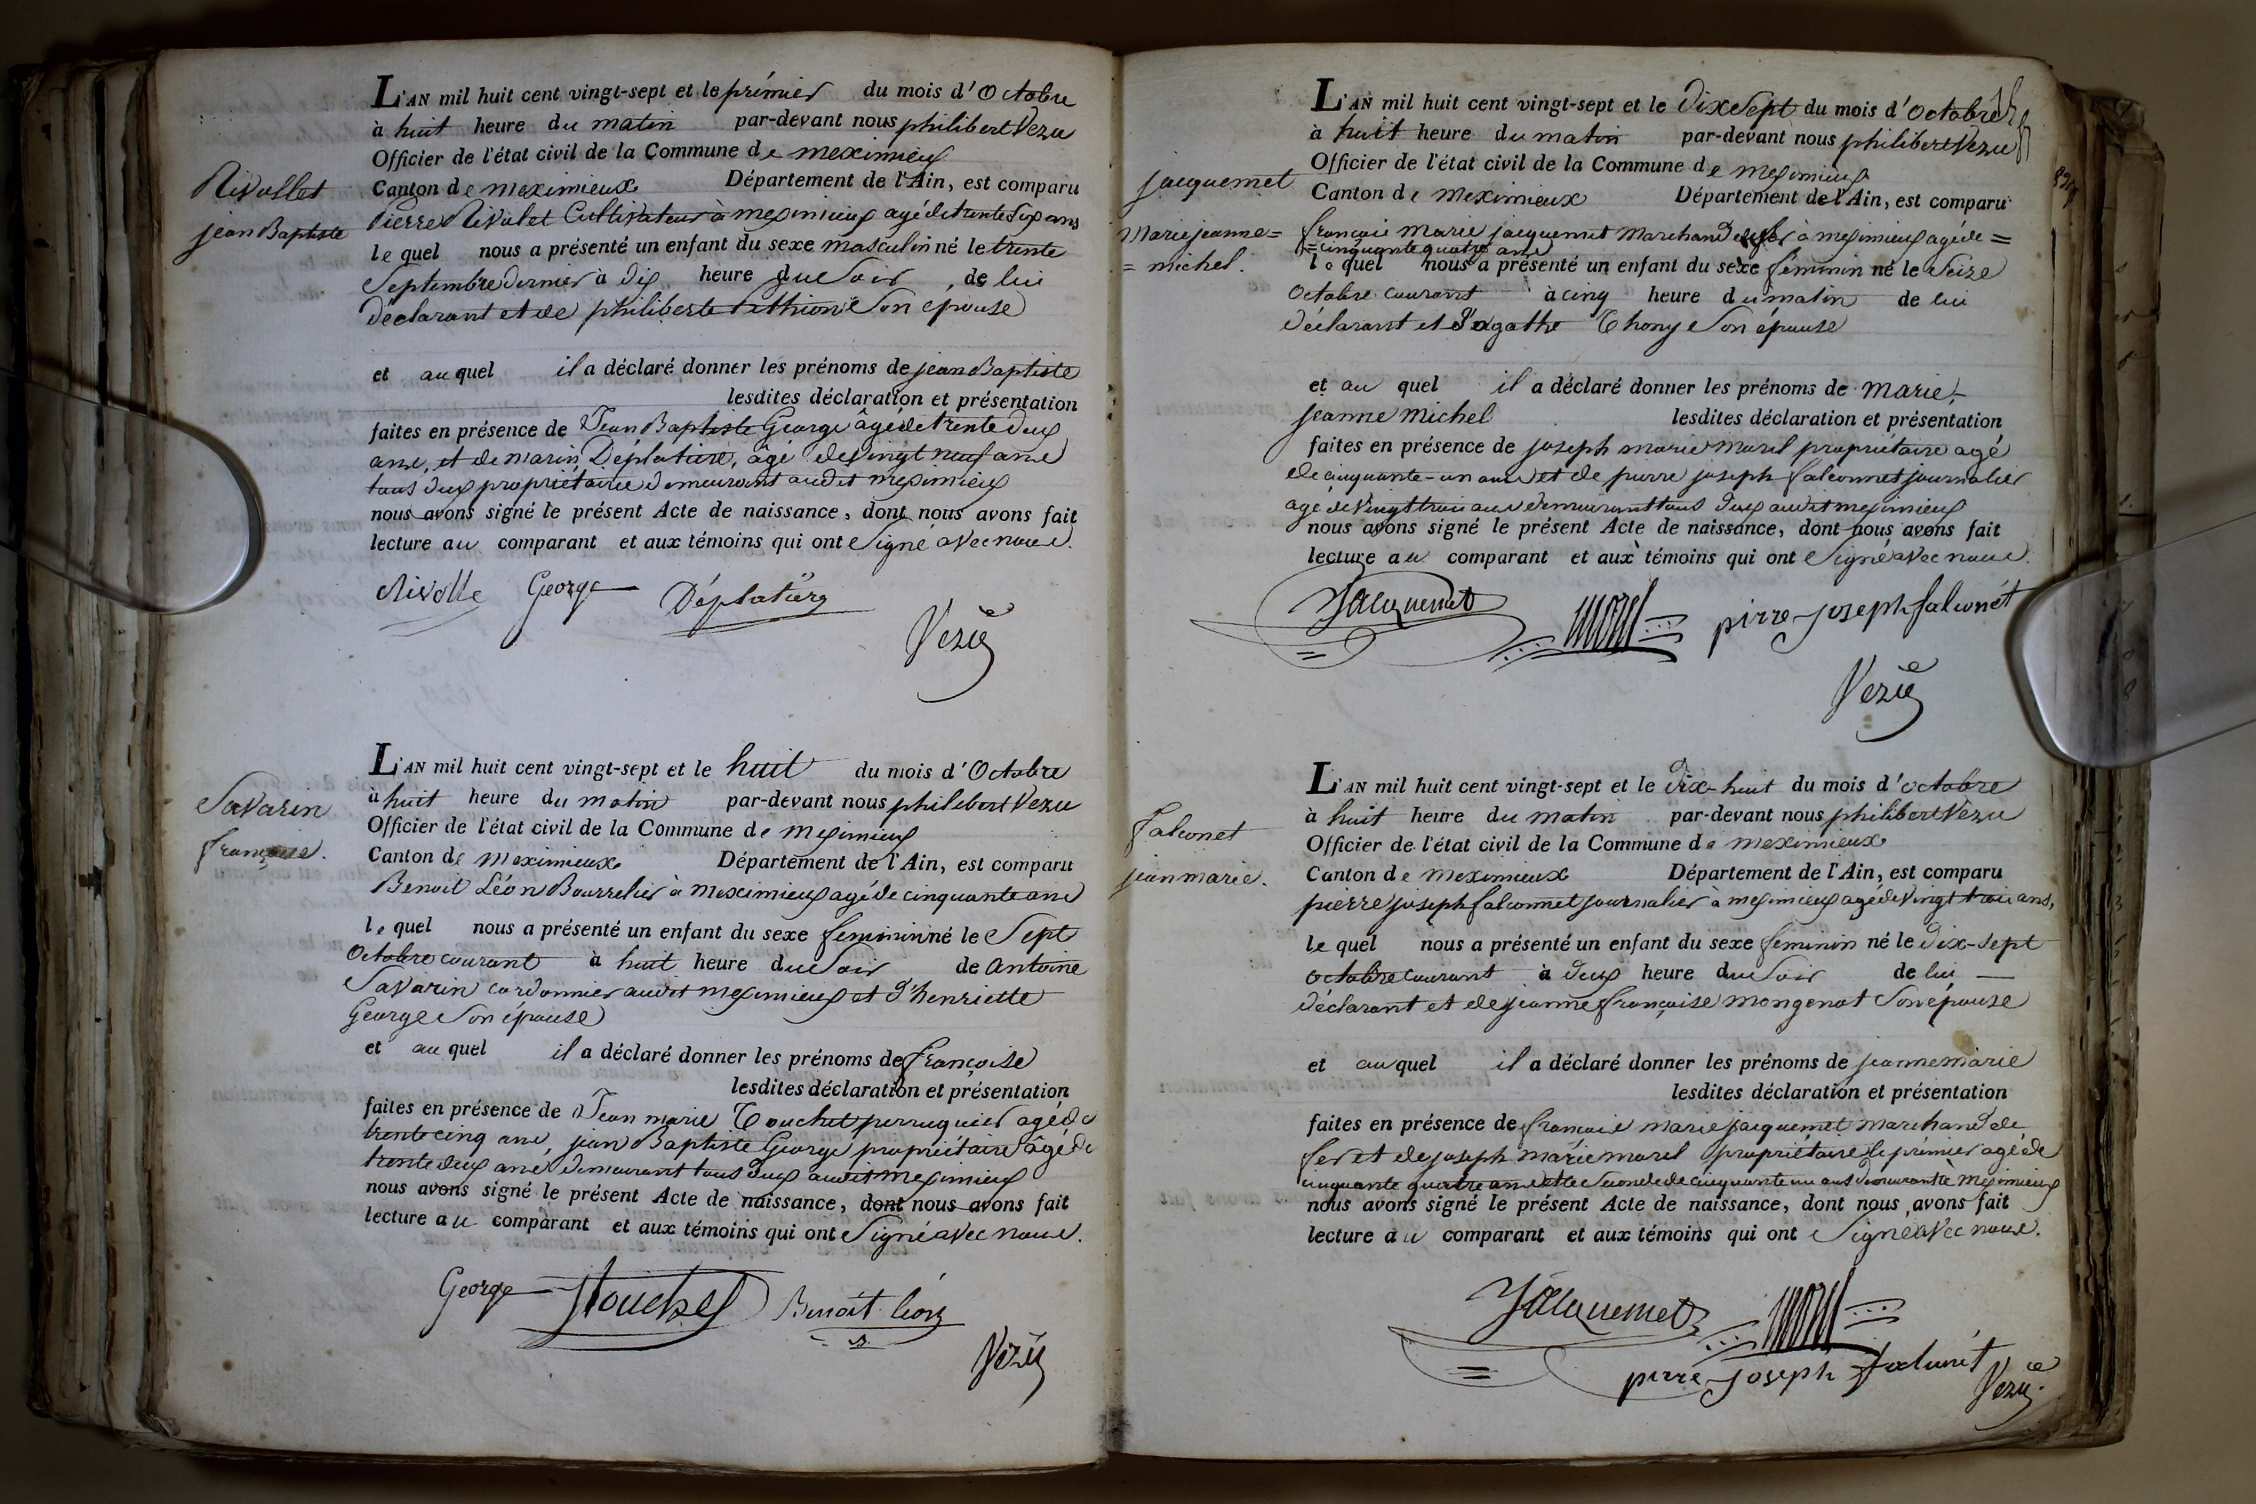 Rivollet
jean Baptiste
L'AN mil huit cent vingt-sept et le prémier du mois d'Octobre
à huit heure du matin par-devant nous philibert Vezu
Officier de l'état civil de la Commune de meximieux
Canton de meximieux Département de l'Ain, est comparu
Pierre Rivolet Cultivateur à meximieux agé de trente six ans
le quel nous a présenté un enfant du sexe masculin né le trente
Septembre dernier à dix heure du Soir de lui
déclarant et de philiberte Pethion Son épouse
et au quel il a déclaré donner les prénoms de jean Baptiste
lesdites déclaration et présentation
faites en présence de Jean Baptiste George âgé de trente deux
ans, et de marin Déplature, âgé de vingt neuf ans
tous deux propriétaires demeurant audit meximieux
nous avons signé le présent Acte de naissance, dont nous avons fait
lecture au comparant et aux témoins qui ont Signé avec nous.
Rivolle George Déplature
Vezu
Savarin
françoise.
L'AN mil huit cent vingt-sept et le huit du mois d'Octobre
à huit heure du matin par-devant nous philibert Vezu
Officier de l'état civil de la Commune de meximieux
Canton de meximieux Département de l'Ain, est comparu
Benoit Léon Bourrelier à meximieux agé de cinquante ans
le quel nous a présenté un enfant du sexe feminin né le Sept
Octobre courant à huit heure du Soir de Antoine
Savarin cordonnier audit meximieux et d'henriette
George Son épouse
et au quel il a déclaré donner les prénoms de françoise
lesdites déclaration et présentation
faites en présence de Jean marie Touchet perruquier agé de
trente cinq ans, jean Baptiste George propriétaire âgé de
trente deux ans demeurant tous deux audit meximieux
nous avons signé le présent Acte de naissance, dont nous avons fait
lecture au comparant et aux témoins qui ont Signé avec nous.
George Touchet Benoit léon
Vezu
jacquemet
marie jeanne =
= michel.
L'AN mil huit cent vingt-sept et le dix Sept du mois d'Octobre
à huit heure du matin par-devant nous philibert Vezu
Officier de l'état civil de la Commune de meximieux
Canton de meximieux Département de l'Ain, est comparu
françois marie jacquemet marchand de fer à meximieux agé de =
= cinquante quatre ans
le quel nous a présenté un enfant du sexe féminin né le Seize
Octobre courant à cinq heure du matin de lui
déclarant et d'agathe Thonye Son épouse
et au quel il a déclaré donner les prénoms de marie
jeanne michel lesdites déclaration et présentation
faites en présence de joseph marie morel propriétaire agé
de cinquante-un ans et de pierre joseph falconnet journalier
agé de vingt trois ans demeurant tous deux audit meximieux
nous avons signé le présent Acte de naissance, dont nous avons fait
lecture au comparant et aux témoins qui ont Signé avec nous.
Jacquemet morel pirre joseph falconét
Vezu
falconet
jean marie.
L'AN mil huit cent vingt-sept et le dix-huit du mois d'octobre
à huit heure du matin par-devant nous philibert Vezu
Officier de l'état civil de la Commune de meximieux
Canton de meximieux Département de l'Ain, est comparu
pierre joseph falconnet journalier à meximieux agé de vingt trois ans,
le quel nous a présenté un enfant du sexe feminin né le dix-sept
octobre courant à deux heure du Soir de lui
déclarant et de jeanne françoise mongenot Son épouse
et au quel il a déclaré donner les prénoms de jeanne marie
lesdites déclaration et présentation
faites en présence de françois marie jacquemet marchand de
fer et de joseph marie morel propriétaire le prémier agé de
cinquante quatre ans et le Second de cinquante un ans demeurant à meximieux
nous avons signé le présent Acte de naissance, dont nous avons fait
lecture au comparant et aux témoins qui ont Signé avec nous.
Jacquemet morel
pirre joseph falconét
Vezu